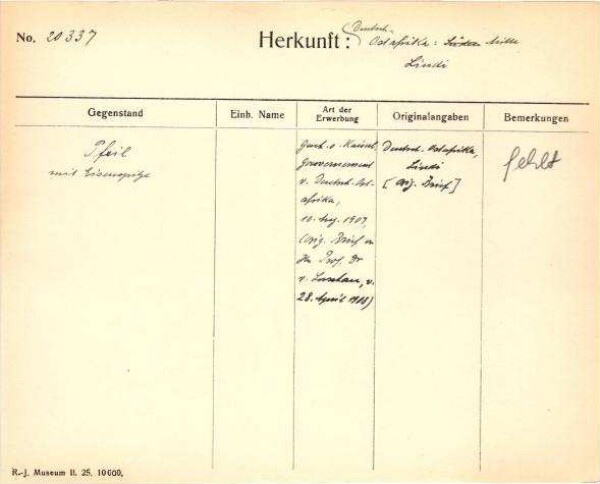 No. 20337
Herkunft: Deutsch-
Ostafrika: Süden Mitte
Lindi
Gegenstand
Einh. Name
Art der
Erwerbung
Originalangaben
Bemerkungen
Pfeil
mit Eisenspitze
Gesch. v. Kaiserl.
Gouvernement
v. Deutsch-Ost-
afrika,
10. Aug. 1907,
(Orig. Brief an
Hn Prof. Dr
v. Luschan, v.
28. April 1908)
Deutsch. Ostafrika,
Lindi
[Orig. Brief]
fehlt
R.-J. Museum II. 25. 10000.